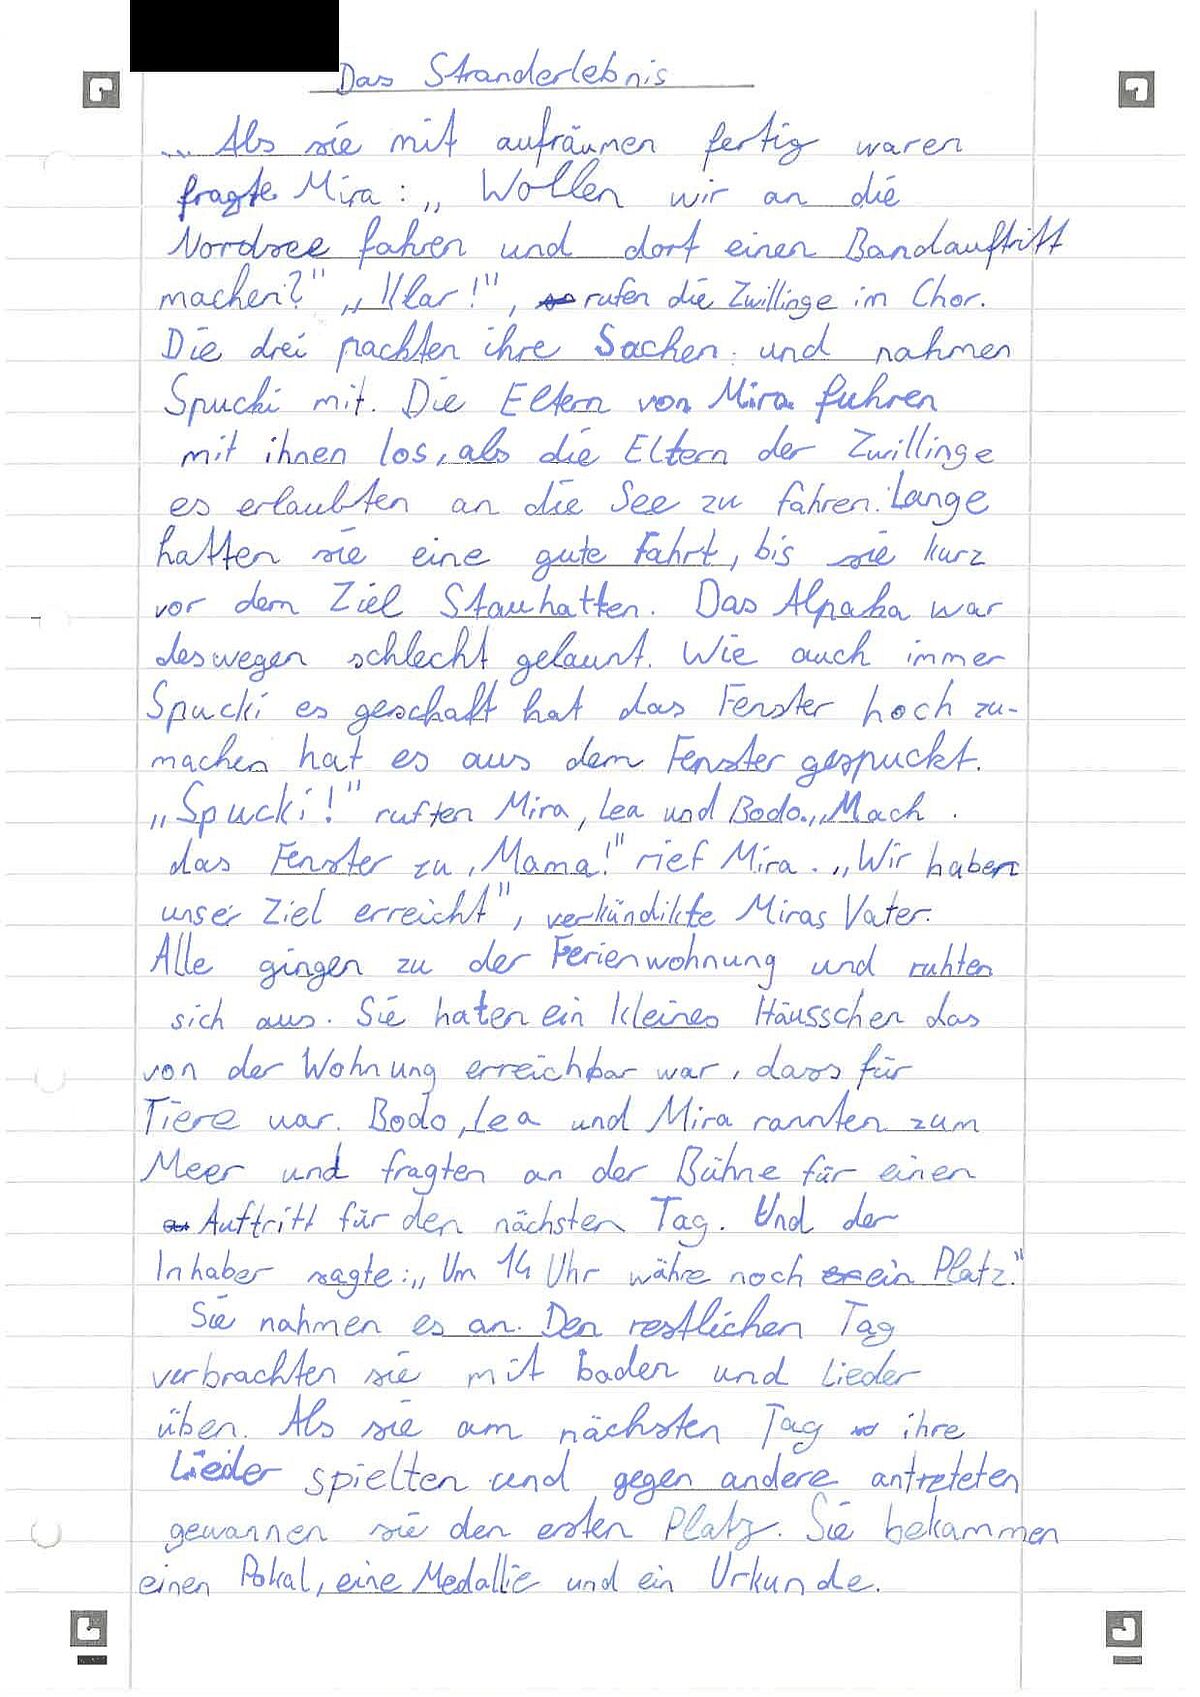 Das Stranderlebnis
... Als sie mit aufräumen fertig waren
fragte Mira: „Wollen wir an die
Nordsee fahren und dort einen Bandauftritt
machen?" „Klar!", rufen die Zwillinge im Chor.
Die drei packten ihre Sachen und nahmen
Spucki mit. Die Eltern von Mira fuhren
mit ihnen los, als die Eltern der Zwillinge
es erlaubten an die See zu fahren. Lange
hatten sie eine gute Fahrt, bis sie kurz
vor dem Ziel Stauhatten. Das Alpaka war
deswegen schlecht gelaunt. Wie auch immer
Spucki es geschaft hat das Fenster hoch zu-
machen hat es aus dem Fenster gespuckt.
„Spucki!" ruften Mira, Lea und Bodo. „Mach
das Fenster zu, Mama!" rief Mira. „Wir haben
unser Ziel erreicht", verkündikte Miras Vater.
Alle gingen zu der Ferienwohnung und ruhten
sich aus. Sie haten ein kleines Häusschen das
von der Wohnung erreichbar war, dass für
Tiere war. Bodo, Lea und Mira rannten zum
Meer und fragten an der Bühne für einen
Auftritt für den nächsten Tag. Und der
Inhaber sagte: „Um 14 Uhr währe noch ein Platz."
Sie nahmen es an. Den restlichen Tag
verbrachten sie mit baden und Lieder
üben. Als sie am nächsten Tag ihre
Lieder spielten und gegen andere antreteten
gewannen sie den ersten Platz. Sie bekammen
einen Pokal, eine Medallie und ein Urkunde.